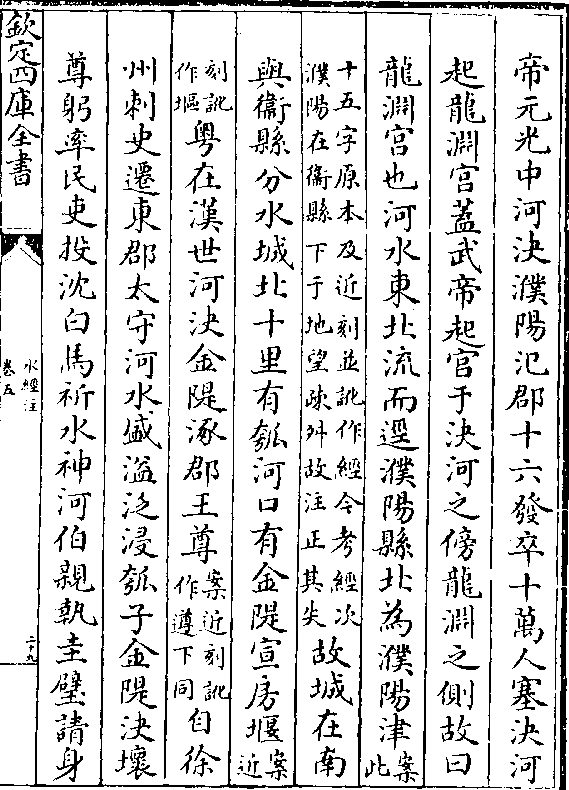 帝元光中河決濮陽氾郡十六發卒十萬人塞決河
起龍淵宮蓋武帝起宮于決河之傍龍淵之側故曰
龍淵宮也河水東北流而逕濮陽縣北為濮陽津案此
十五字原本及近刻並訛作經今考經次濮陽在衞縣下于地望疎舛故注正其失故城在南
與衞縣分水城北十里有瓠河口有金隄宣房堰案近
刻訛作堀粵在漢世河決金隄涿郡王尊案近刻訛作遵下同自徐
州刺史遷東郡太守河水盛溢泛浸瓠子金隄決壞
尊躬率民吏投沈白馬祈水神河伯親執圭璧請身
欽定四庫全書
水經注
卷五
二十九